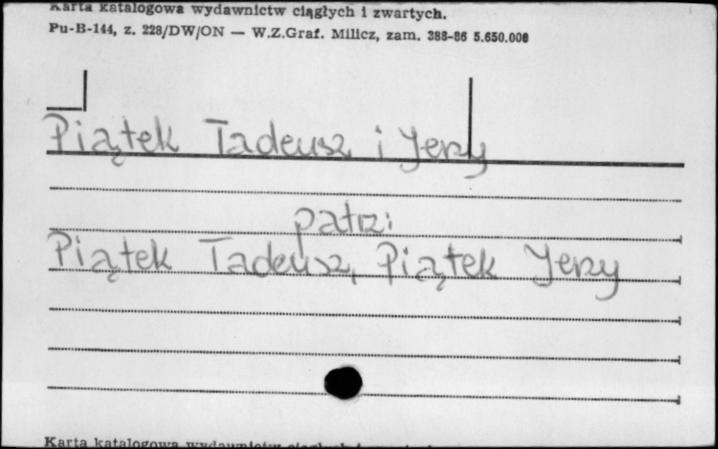 Karta katalogowa wydawnictw ciągłych i zwartych.
Pu-B-144, z. 228/DW/ON — W.Z.Graf. Milicz, zam. 388-86 5.650.000
Piątek Tadeusz i Jerzy
patrz:
Piątek Tadeusz, Piątek Jerzy
Karta katalogowa wydawnictw ciągłych i